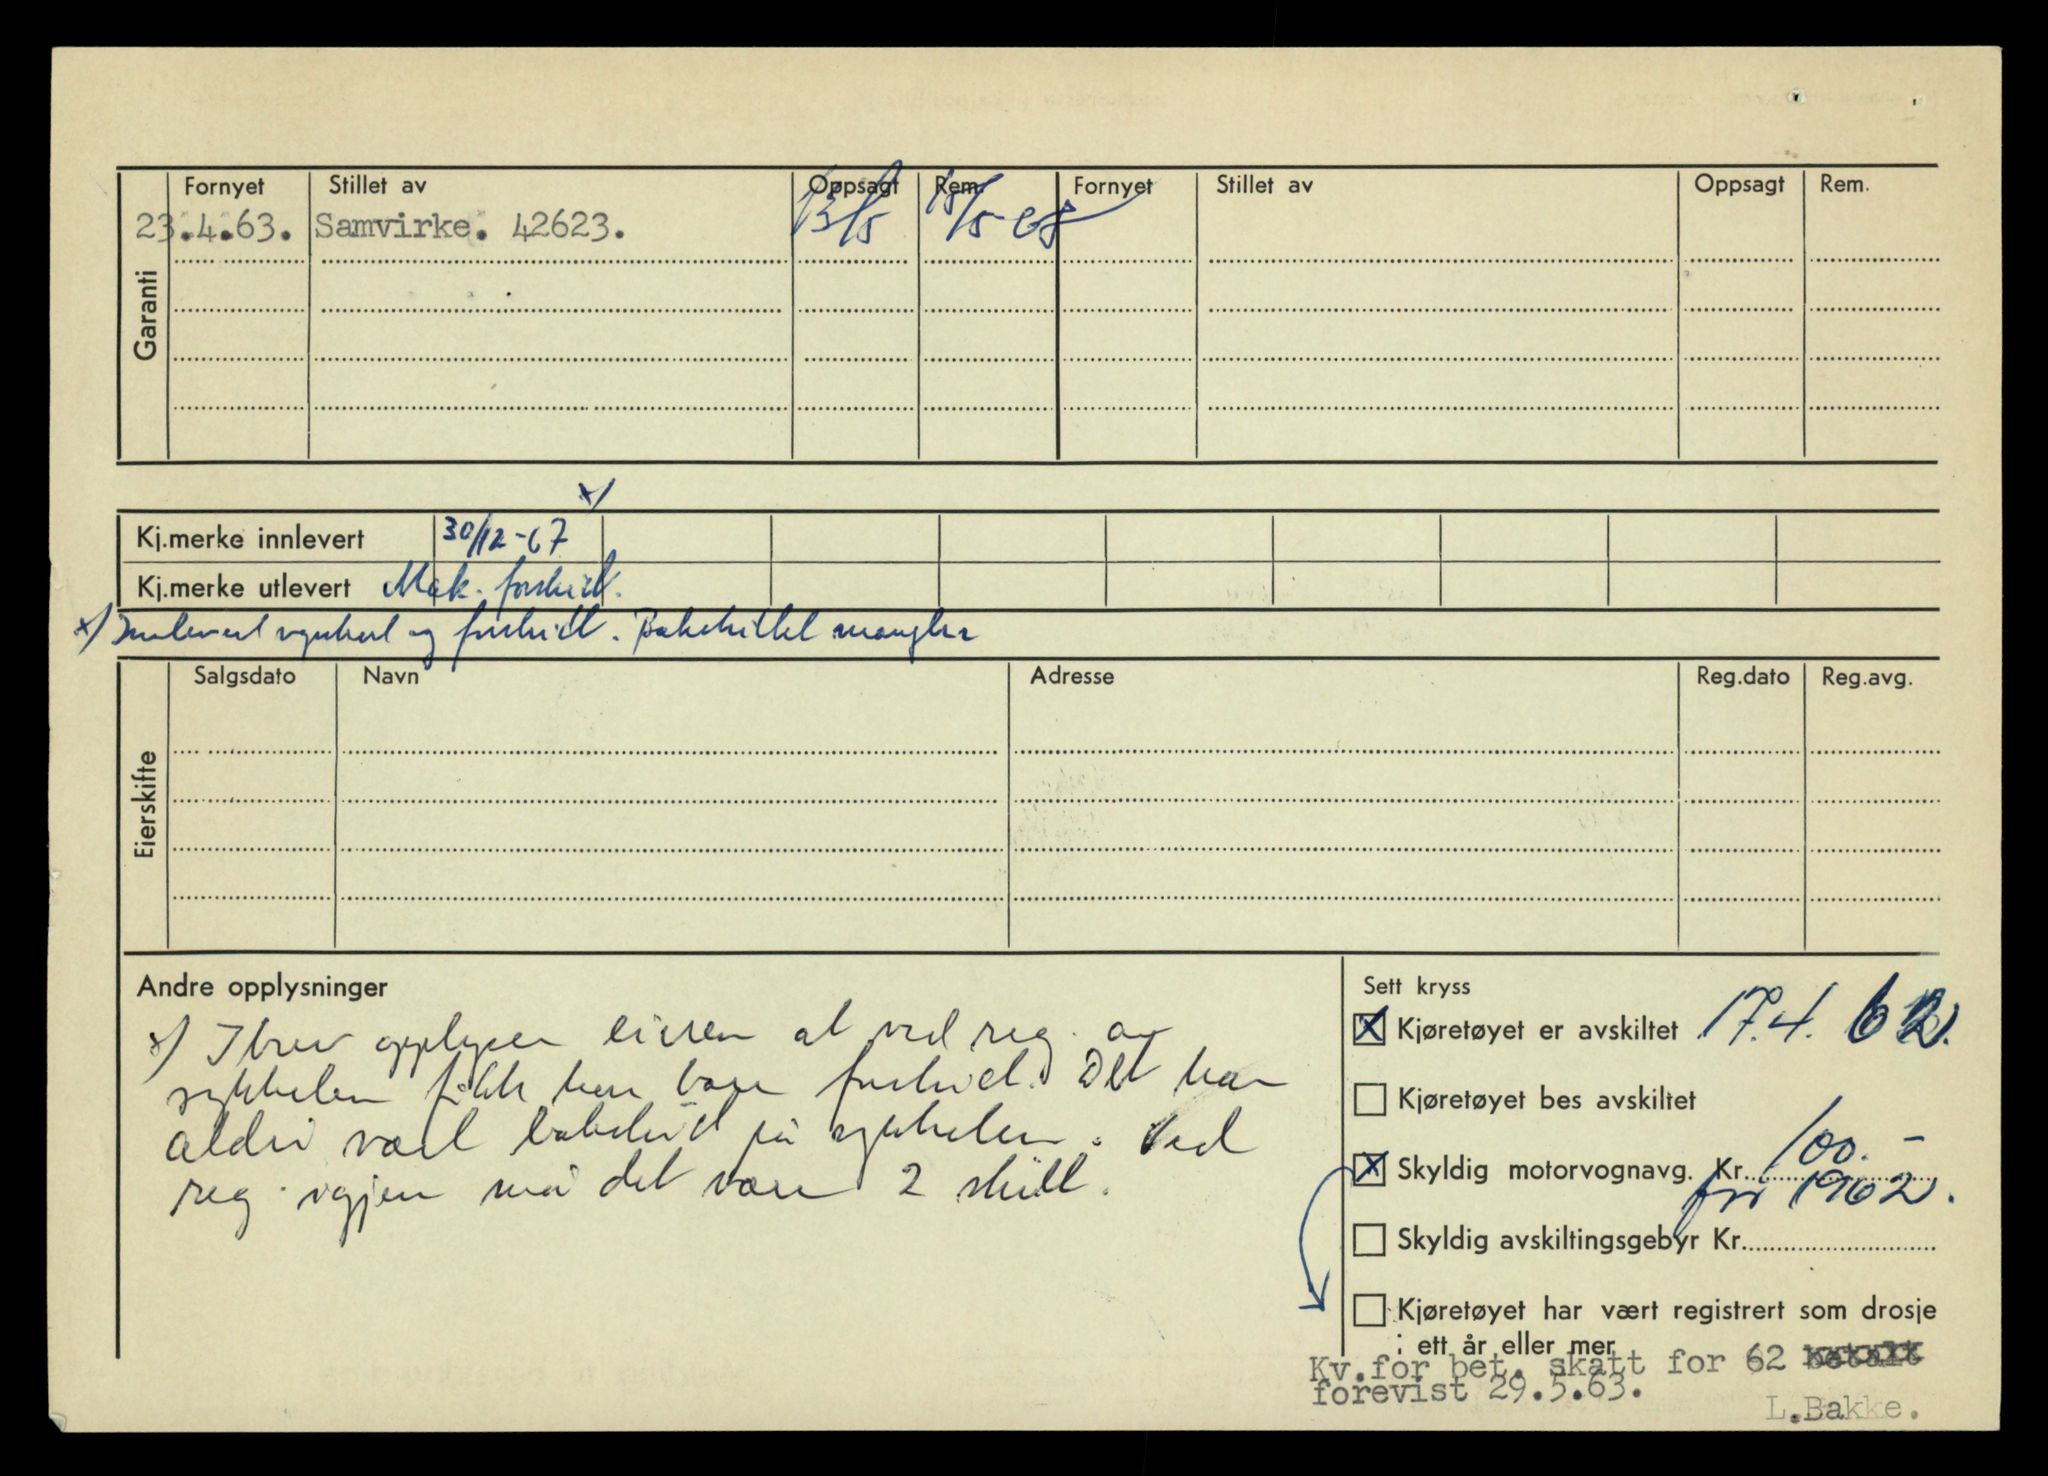 Fornyet Stillet av Oppsagt Rem. Fornyet Stillet av Oppsagt Rem.
23.4.63. Samvirke. 42623. 13/5 15/5-68
Garanti
x)
Kj.merke innlevert 30/12-67
Kj.merke utlevert Mak. forskilt.
x) Innlevert vognkort og forskilt. Bakskiltet mangler
Salgsdato Navn Adresse Reg.dato Reg.avg.
Eierskifte
Andre opplysninger
x) I brev opplyser eieren at ved reg. av
sykkelen fikk han bare forskilt. Det har
aldri vært bakskilt på sykkelen. Ved
reg. igjen må det være 2 skilt.
Sett kryss
x Kjøretøyet er avskiltet 17.4.62.
Kjøretøyet bes avskiltet
x Skyldig motorvognavg. Kr. 100.-
for 1962.
Skyldig avskiltingsgebyr Kr.
Kjøretøyet har vært registrert som drosje
i ett år eller mer
Kv.for bet. skatt for 62 betalt
forevist 29.5.63.
L.Bakke.